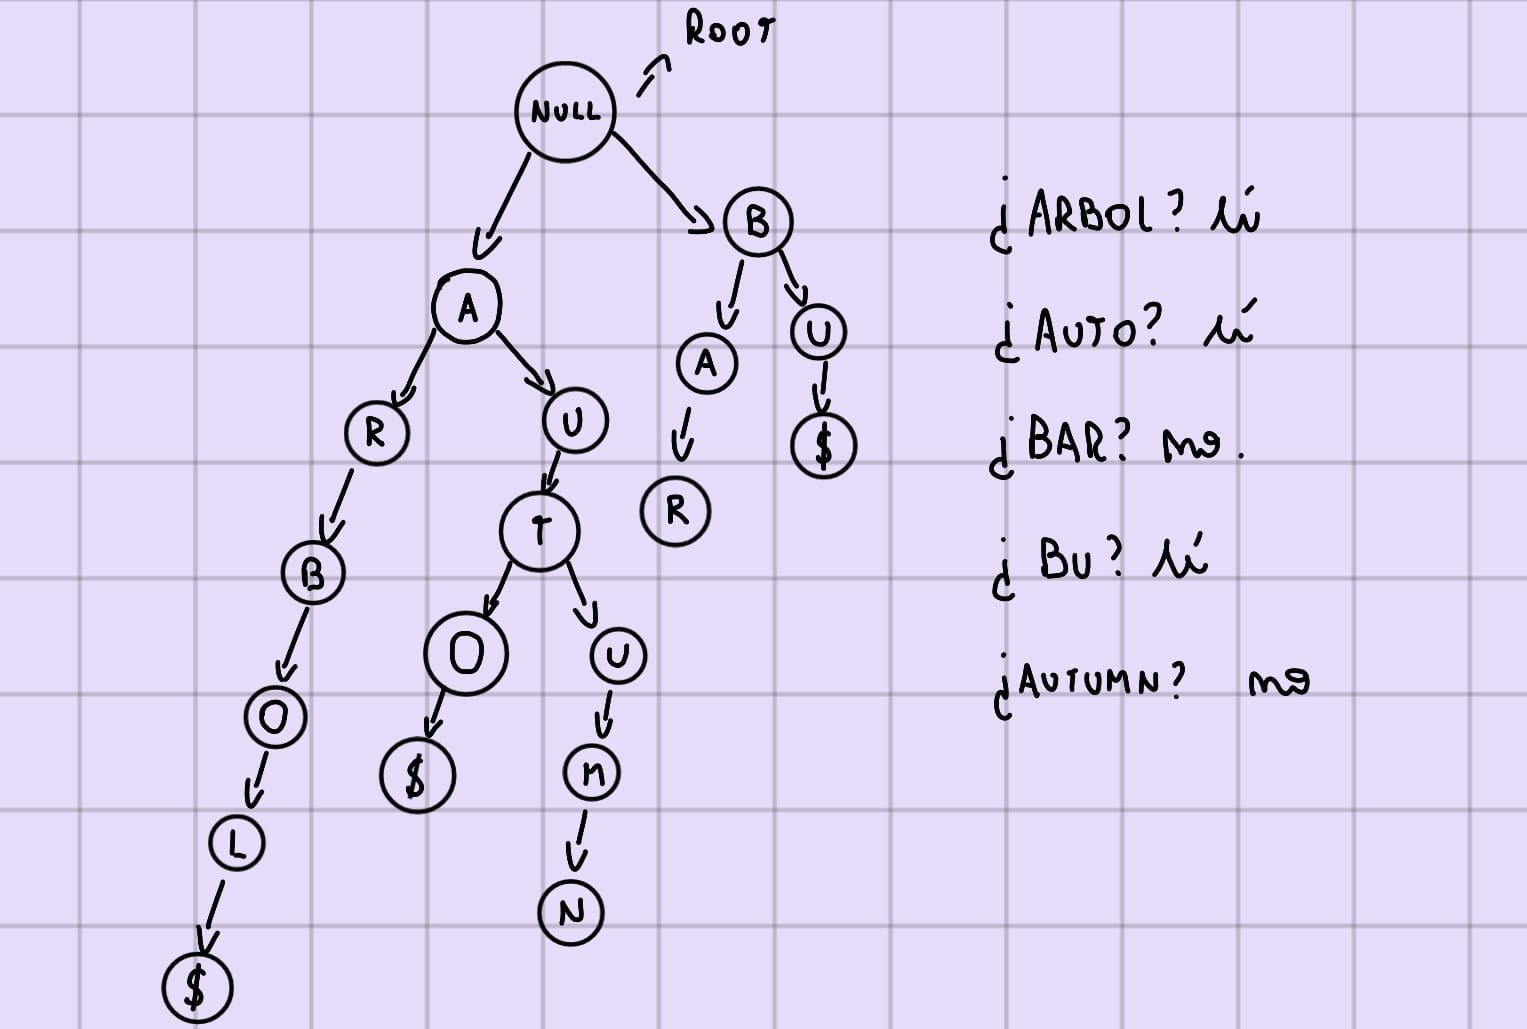 ROOT
NULL
B
A
A
U
R
U
$
T
R
B
O
U
O
$
M
L
N
$
¿ARBOL? sí
¿AUTO? sí
¿BAR? no.
¿BU? sí
¿AUTUMN? no